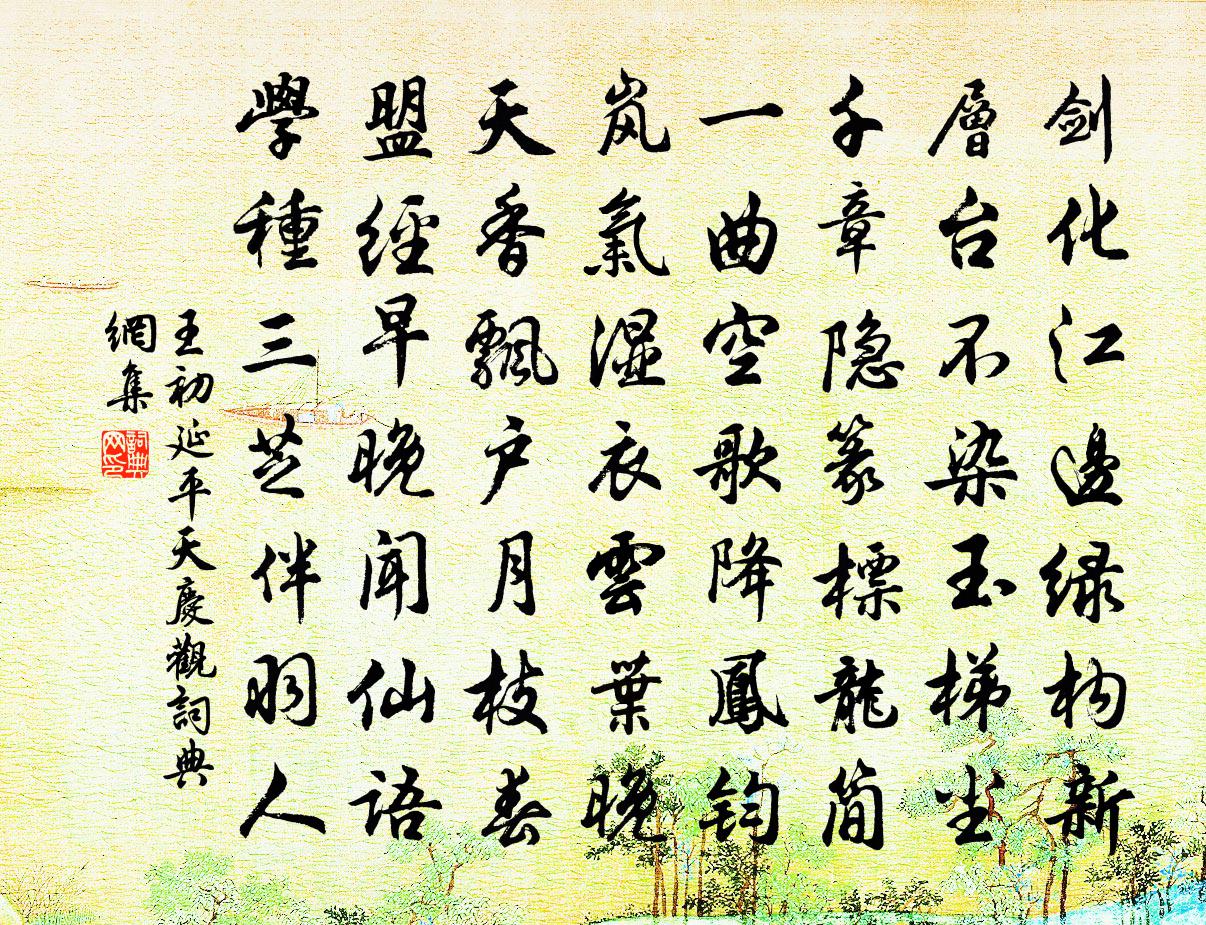 剑化江邊绿构新
層台不染玉梯尘
千章隐篆標龍简
一曲空歌降鳳钧
岚氣湿衣雲葉晚
天香飄户月枝春
盟經早晚闻仙语
學種三芝伴羽人
王初延平天慶觀詞典
網集
詞典
网印